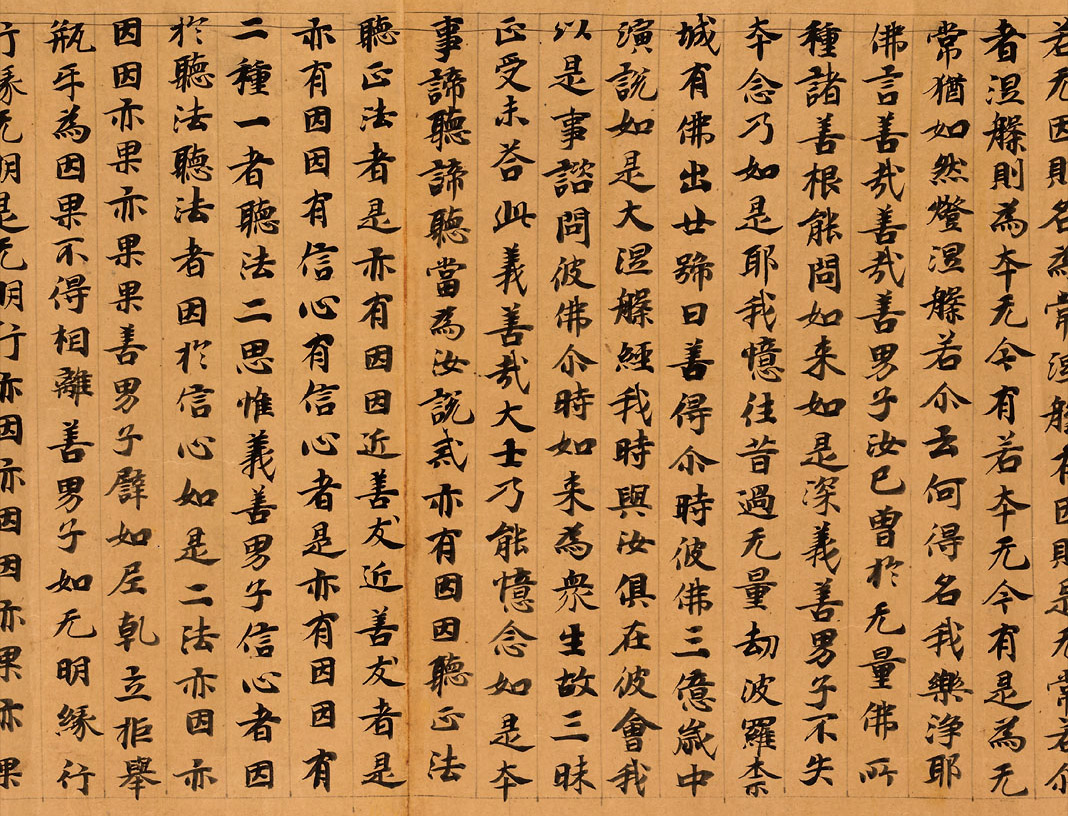 若无因則名為常涅槃有因則是无常若尒
者涅槃則為本无今有若本无今有是為无
常猶如然燈涅槃若尒云何得名我樂淨耶
佛言善哉善哉善男子汝已曾於无量佛所
種諸善根能問如来如是深義善男子不失
本念乃如是耶我憶往昔過无量劫波羅柰
城有佛出世號曰善得尒時彼佛三億歲中
演說如是大涅槃經我時與汝俱在彼會我
以是事諮問彼佛尒時如来為衆生故三昧
正受未荅此義善哉大士乃能憶念如是本
事諦聽諦聽當為汝說戒亦有因因聽正法
聽正法者是亦有因因近善友近善友者是
亦有因因有信心有信心者是亦有因因有
二種一者聽法二思惟義善男子信心者因
於聽法聽法者因於信心如是二法亦因亦
因因亦果亦果果善男子譬如尼乹立拒舉
瓶乎為因果不得相離善男子如无明緣行
行緣无明是无明行亦因亦因因亦果亦果